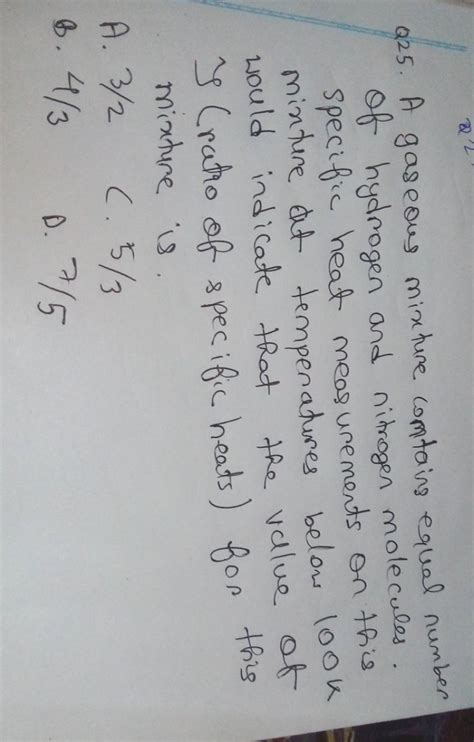 Q25. A gaseous mixture contains equal number
of hydrogen and nitrogen molecules.
specific heat measurements on this
mixture at temperatures below 100K
would indicate that the value of
γ (ratio of specific heats) for this
mixture is.
A. 3/2 C. 5/3
B. 4/3 D. 7/5